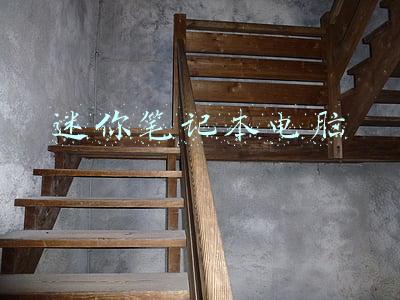 迷你笔记本电脑